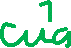 1
cua